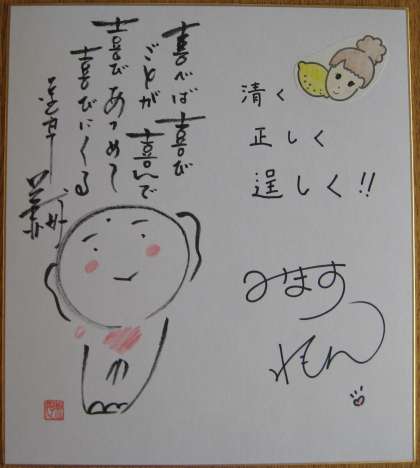 清く
正しく
逞しく!!
みます
れもん
喜べば喜び
ごとが喜んで
喜びあつめて
喜びにくる